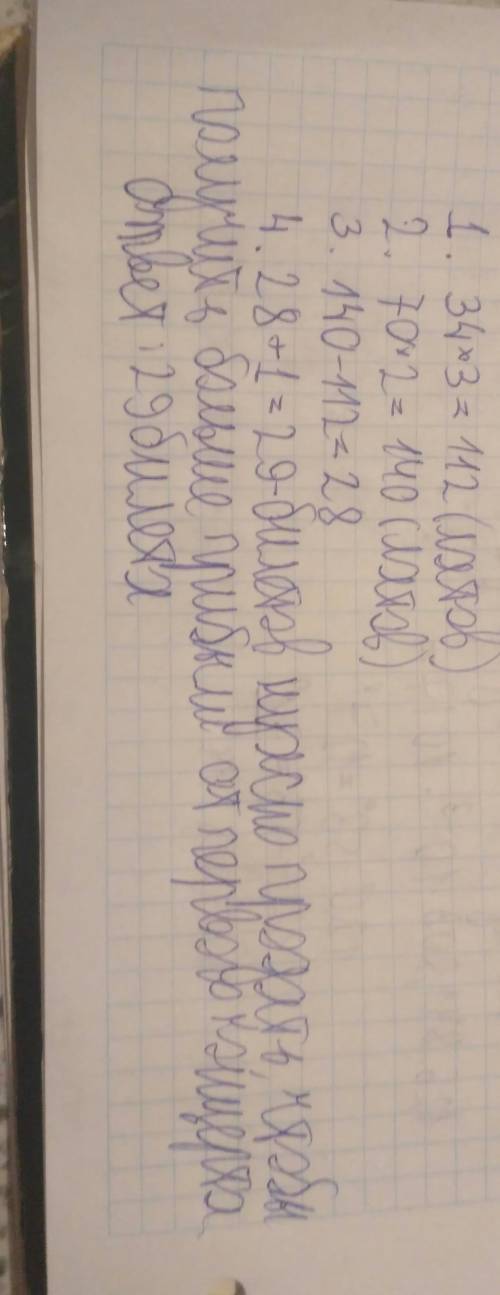 1. 34*3=112 (лятов)
2. 70*2=140 (лятов)
3. 140-112=28
4. 28+1=29-билетов нужно продать, чтобы
получить больше прибыли от первого концерта
ответ: 29 билета